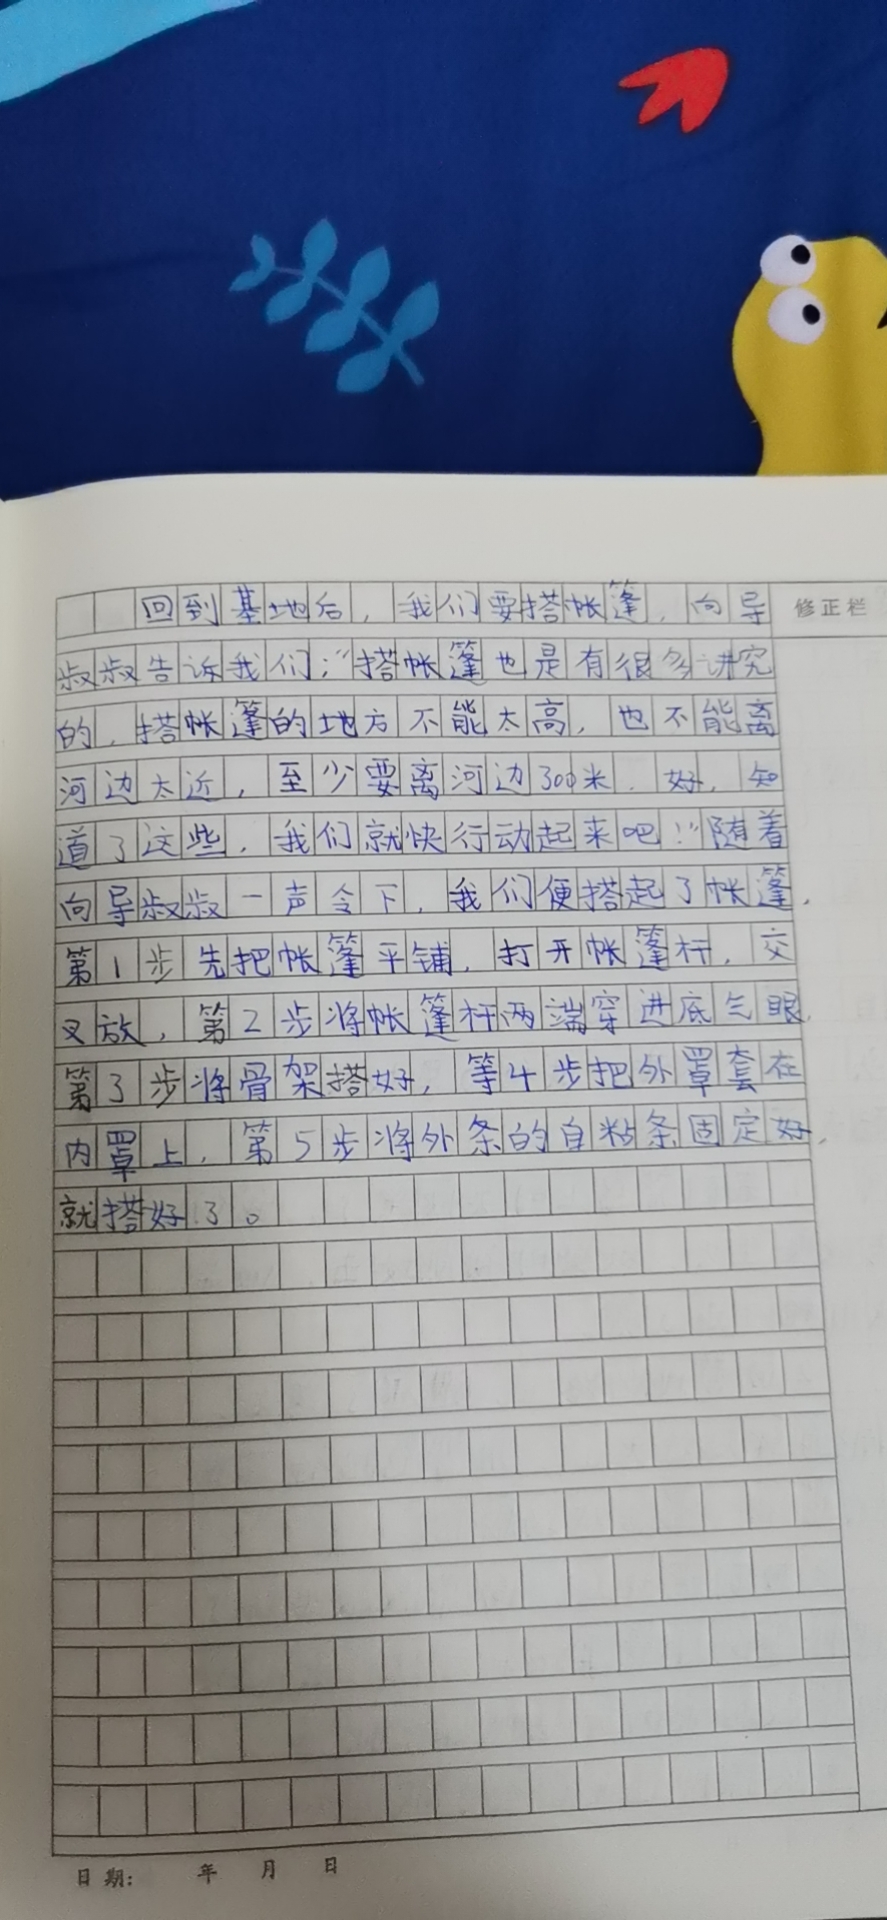 回到基地后，我们要搭帐篷，向导
修正栏
叔叔告诉我们：“搭帐篷也是有很多讲究
的，搭帐篷的地方不能太高，也不能离
河边太近，至少要离河边300米．好，知
道了这些，我们就快行动起来吧！”随着
向导叔叔一声令下，我们便搭起了帐篷，
第1步先把帐篷平铺，打开帐篷杆，交
叉放，第2步将帐篷杆两端穿进底气眼，
第3步将骨架搭好，等4步把外罩套在
内罩上，第5步将外条的自粘条固定好，
就搭好了。
日期： 年 月 日